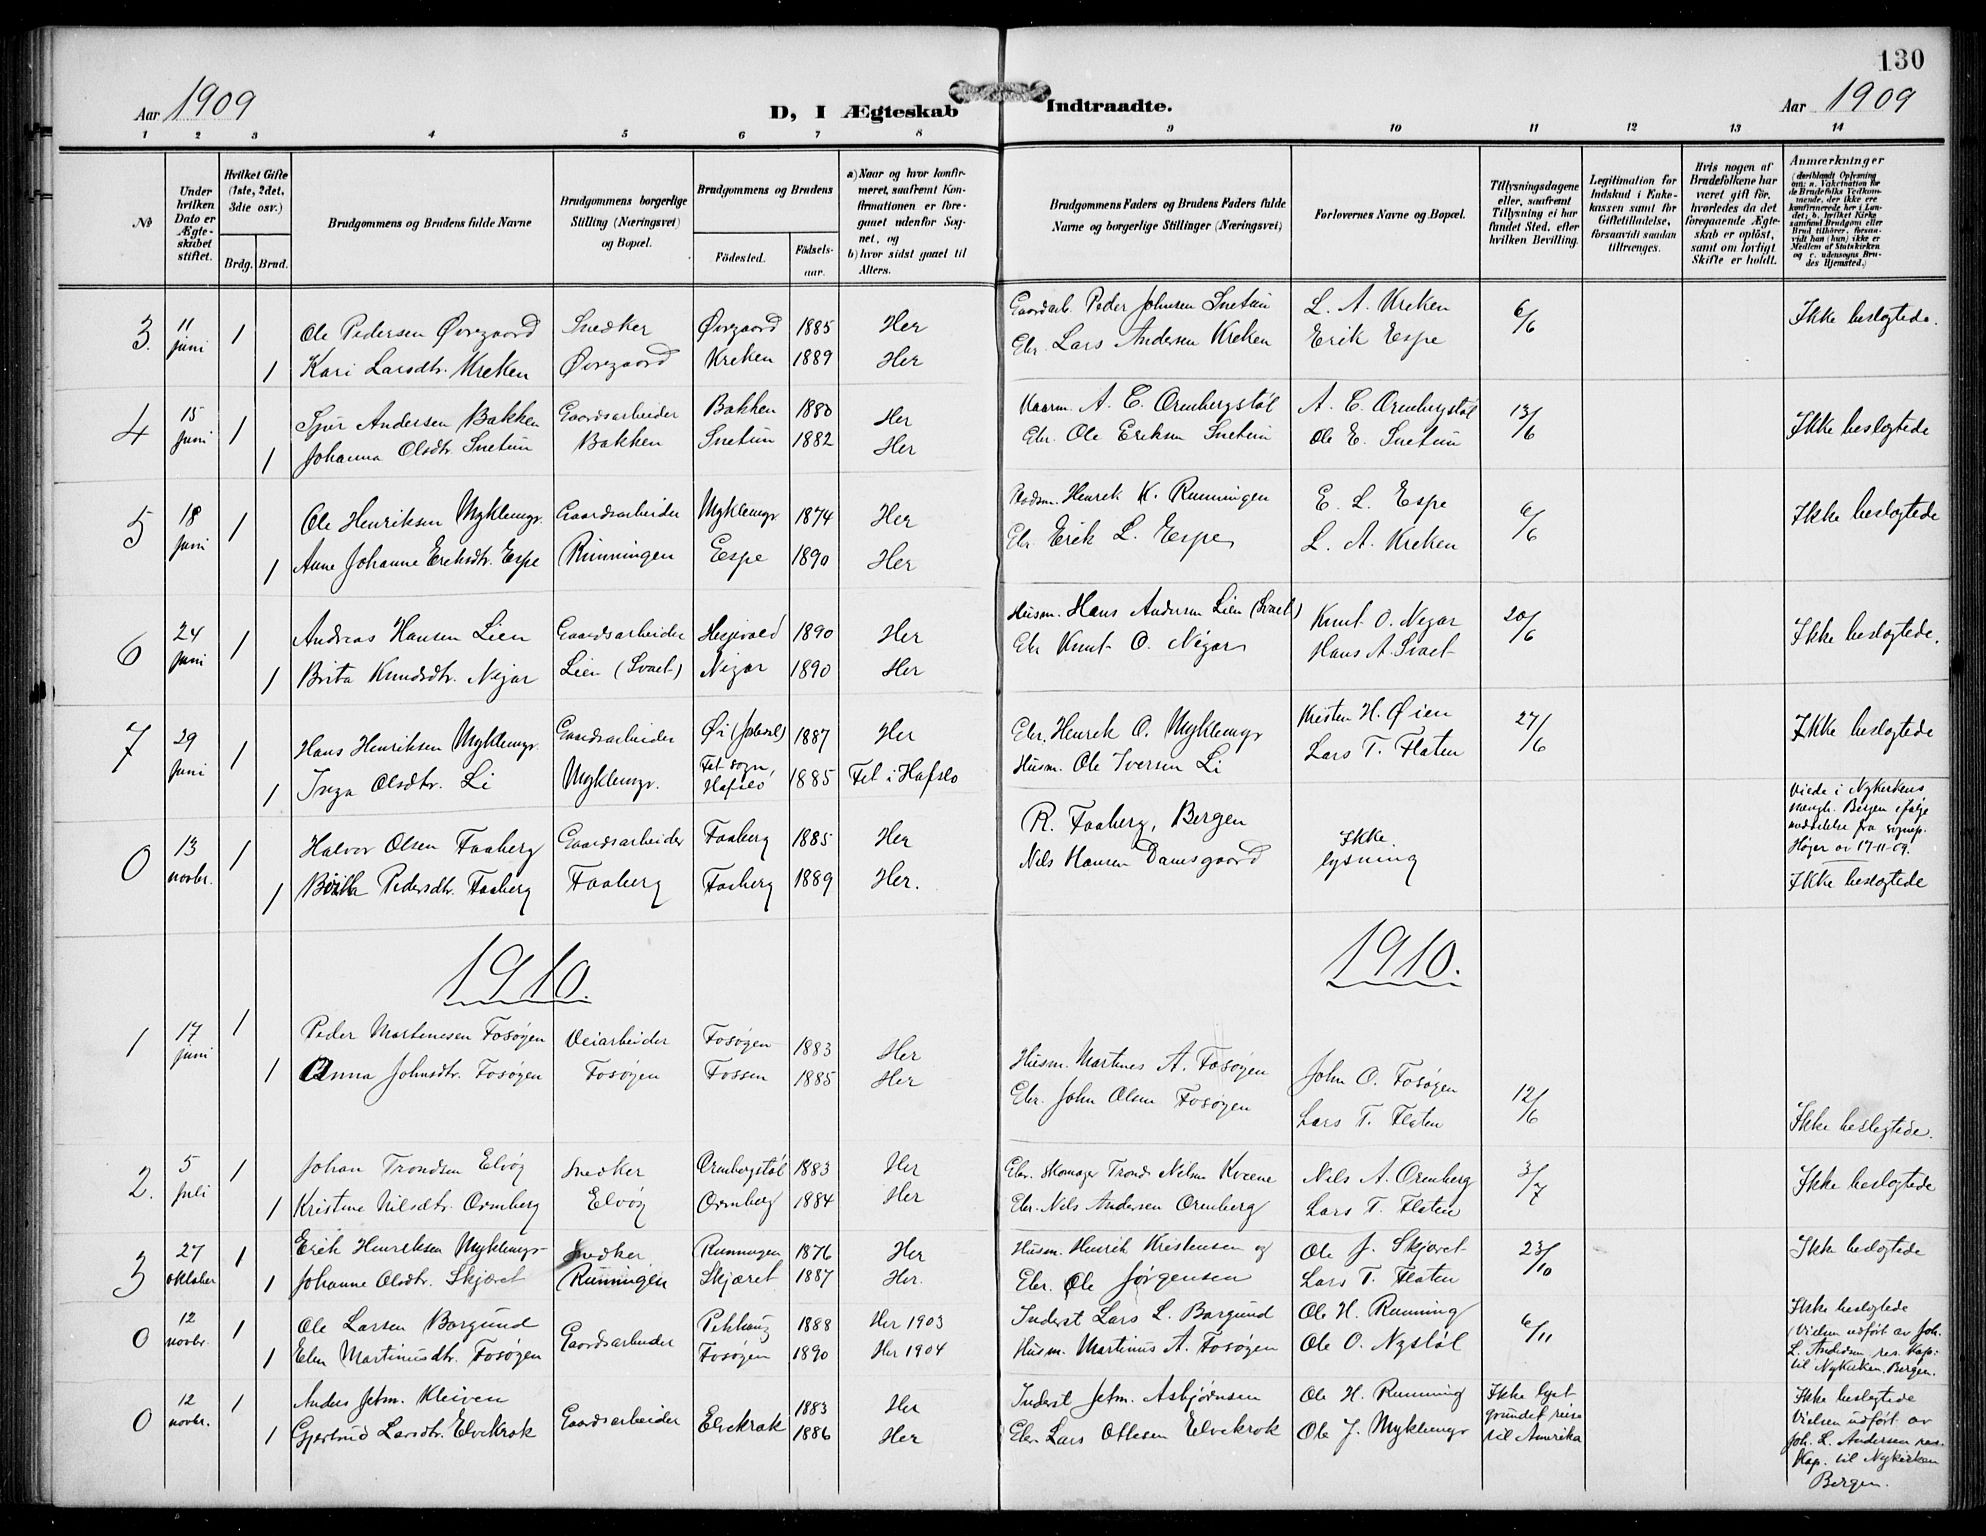 130
Aar 1909
D, I Ægteskab Indtraadte.
Aar 1909
1 2 3 4 5 6 7 8 9 10 11 12 13 14
№
Under hvilken Dato er Ægteskabet stiftet.
Hvilket Gifte (1ste, 2det, 3die osv.)
Brdg. Brud.
Brudgommens og Brudens fulde Navne
Brudgommens borgerlige Stilling (Næringsvei) og Bopæl.
Brudgommens og Brudens
Födested.
Födselsaar.
a) Naar og hvor konfirmeret, saafremt Konfirmationen er foregaaet udenfor Sognet, og
b) hvor sidst gaaet til Alters.
Brudgommens Faders og Brudens Faders fulde Navne og borgerlige Stillinger (Næringsvei)
Forlovernes Navne og Bopæl.
Tillysningsdagene eller, saafremt Tillysning ei har fundet Sted, efter hvilken Bevilling.
Legitimation for Indskud i Enkekassen samt for Giftetilladelse, forsaavidt saadan tiltrænges.
Hvis nogen af Brudefolkene har været gift för, hvorledes da det foregaaende Ægteskab er oplöst, samt om lovligt Skifte er holdt.
Anmærkninger (deriblandt Oplysning om: a. Vakcination for de Brudefolks Vedkommende, der ikke ere konfirmerede her i Landet; b. hvilket Kirkesamfund Brudgom eller Brud tilhörer, forsaavidt han (hun) ikke er Medlem af Statskirken og c. udensogns Brudes Hjemsted.)
3. 11 juni 1 Ole Pedersen Øvregaard Snedker Øvregaard 1885 Her Gaardarb. Peder Johnsen Snetun L. A. Kreken 6/6 Ikke beslegtede.
1 Kari Larsdtr. Kreken Øvregaard Kreken 1889 Her Gbr. Lars Andersen Kreken Erik Espe
4 15 juni 1 Sjur Andersen Bakken Gaardsarbeider Bakken 1880 Her Kaarm. A. E. Ormbergstøl A. E. Ormbergstøl 13/6 Ikke beslegtede
1 Johanna Olsdtr. Snetun Bakken Snetun 1882 Her Gbr. Ole Eriksen Snetun Ole E. Snetun
5 18 juni 1 Ole Henriksen Myklemyr. Gaardsarbeider Myklemyr 1874 Her Pladsm. Henrek K. Runningen E. L. Espe 6/6 Ikke beslegtede
1 Anne Johanne Eriksdtr. Espe Runningen Espe 1890 Her Gbr. Erik L. Espe L. A. Kreken
6 24 juni 1 Andreas Hansen Lien Gaardsarbeider 1890 Her Husm. Hans Andersen Lien (Svaet) Knut O. Nigar 20/6 Ikke beslegtede.
1 Brita Knudsdtr. Nigar Lien (Svaet) Nigar 1890 Her Gbr Knut O. Nigar Hans A. Svaet
7 29 juni 1 Hans Henriksen Myklemyr. Gaardsarbeider Øi 1887 Her Gbr. Henrik O. Myklemyr Kristen H. Øien 27/6 Ikke beslegtede
1 Inga Olsdtr. Li Myklemyr. Fet sogn, Hafslo 1885 Fet i Hafslo Husm. Ole Iversen Li Lars T. Flaten
0 13 novbr. 1 Halvor Olsen Faaberg Gaardsarbeider Faaberg 1885 Her R. Faaberg, Bergen Ikke lysning Viede i Nykirkens menigh. Bergen ifølge meddelelse fra sognep. Høyer av 17-11-09.
1 Brita Pedersdtr. Faaberg Faaberg Faaberg 1889 Her. Nils Hansen Damsgaard Ikke beslegtede
1910. 1910.
1 17 juni 1 Peder Martinessen Fosøyen Veiarbeider Fosøyen 1883 Her Husm. Martines A. Fosøyen John O. Fosøyen 12/6
1 Anna Johnsdtr. Fosøyen Fosøyen Fossen 1885 Her Gbr. John Olsen Fosøyen Lars T. Flaten Ikke beslegtede.
2. 5 juli 1 Johan Trondsen Elvøy Snedker Ormbergstøl 1883 Her Gbr. Skomager Trond Nilsen Kveene Nils A. Ormberg 3/7 Ikke beslegtede
1 Kristine Nilsdtr. Ormberg Elvøy Ormberg 1884 Her Gbr. Nils Andersen Ormberg Lars T. Flaten
3 27 oktober 1 Erik Henriksen Myklemyr Snedker Runningen 1876 Her Husm. Henrik Kristensen og Ole J. Skjæret 23/10 Ikke beslegtede
1 Johanne Olsdtr. Skjæret Runningen Skjæret 1887 Her. Gbr. Ole Jørgensen Lars T. Flaten
0 12 novbr. 1 Ole Larsen Borgund Gaardsarbeider 1888 Her 1903 Inderst Lars L. Borgund Ole H. Running 6/11 Ikke beslegtede (Vielsen udført av Joh. L. Andersen res. Kap. til Nykirken. Bergen.
1 Elen Martinusdtr. Fosøyen Fosøyen 1890 Her 1904 Husm. Martinus A. Fosøyen Ole O. Nystøl
0 12 novbr. 1 Anders Jetm. Kleiven Gaardsarbeider Elvekrok 1883 Her Inderst Jetm. Asbjørnsen Ole H. Running Ikke lyst grundet reise til Amerika Ikke beslegtede Vielsen udført av Joh. L. Andersen res. Kap. til Nykirken Bergen.
1 Gjertrud Larsdtr. Elvekrok 1886 Her Gbr. Lars Ottesen Elvekrok Ole J. Myklemyr